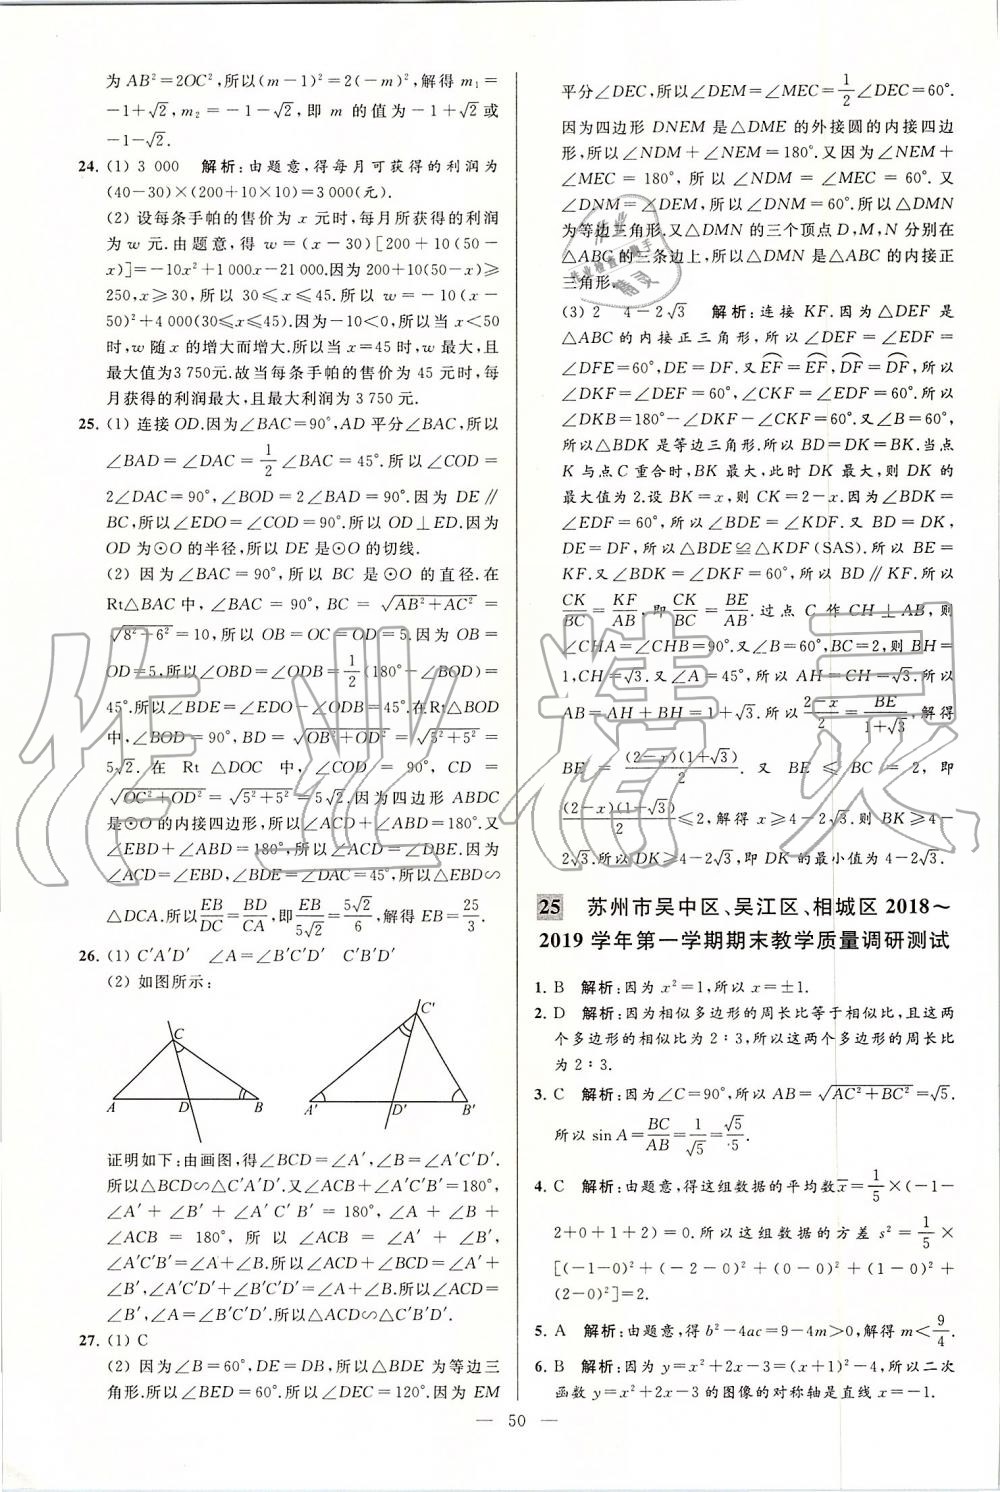 为 AB²=2OC²,所以(m-1)²=2(-m)²,解得 m₁=
-1+√2,m₂=-1-√2,即 m 的值为-1+√2或
-1-√2.
24. (1) 3 000 解析:由题意,得每月可获得的利润为
(40-30)×(200+10×10)=3 000(元).
(2) 设每条手帕的售价为 x 元时,每月所获得的利润
为 w 元.由题意,得 w=(x-30)[200+10(50-
x)]=-10x²+1 000x-21 000.因为200+10(50-x)≥
250,x≥30,所以 30≤x≤45.所以 w=-10(x-
50)²+4 000(30≤x≤45).因为-10<0,所以当 x<50
时,w 随 x 的增大而增大.所以当 x=45 时,w 最大,且
最大值为3 750元.故当每条手帕的售价为 45 元时,每
月获得的利润最大,且最大利润为 3 750 元.
25. (1) 连接 OD.因为∠BAC=90°,AD 平分∠BAC,所以
∠BAD=∠DAC=1/2∠BAC=45°.所以∠COD=
2∠DAC=90°,∠BOD=2∠BAD=90°.因为 DE∥
BC,所以∠EDO=∠COD=90°.所以 OD⊥ED.因为
OD 为⊙O 的半径,所以 DE 是⊙O 的切线.
(2) 因为∠BAC=90°,所以 BC 是⊙O 的直径.在
Rt△BAC 中,∠BAC=90°,BC=√(AB²+AC²)=
√(8²+6²)=10,所以 OB=OC=OD=5.因为 OB=
OD=5,所以∠OBD=∠ODB=1/2(180°-∠BOD)=
45°.所以∠BDE=∠EDO-∠ODB=45°.在Rt△BOD
中,∠BOD=90°,BD=√(OB²+OD²)=√(5²+5²)=
5√2.在 Rt△DOC 中,∠COD=90°,CD=
√(OC²+OD²)=√(5²+5²)=5√2.因为四边形 ABDC
是⊙O 的内接四边形,所以∠ACD+∠ABD=180°.又
∠EBD+∠ABD=180°,所以∠ACD=∠DBE.因为
∠ACD=∠EBD,∠BDE=∠DAC,所以△EBD∽
△DCA.所以EB/DC=BD/CA,即EB/5√2=5√2/6,解得 EB=25/3.
26. (1) C′A′D′ ∠A=∠B′C′D′ C′B′D′
(2) 如图所示:
C C′
A D B A′ D′ B′
证明如下:由画图,得∠BCD=∠A′,∠B=∠A′C′D′.
所以△BCD∽△C′A′D′.又∠ACB+∠A′C′B′=180°,
∠A′+∠B′+∠A′C′B′=180°,∠A+∠B+
∠ACB=180°,所以∠ACB=∠A′+∠B′,
∠A′C′B′=∠A+∠B.所以∠ACD+∠BCD=∠A′+
∠B′,∠A′C′D′+∠B′C′D′=∠A+∠B.所以∠ACD=
∠B′,∠A=∠B′C′D′.所以△ACD∽△C′B′D′.
27. (1) C
(2) 因为∠B=60°,DE=DB,所以△BDE 为等边三
角形.所以∠BED=60°.所以∠DEC=120°.因为 EM
平分∠DEC,所以∠DEM=∠MEC=1/2∠DEC=60°.
因为四边形 DNEM 是△DME 的外接圆的内接四边
形,所以∠NDM+∠NEM=180°.又因为∠NEM+
∠MEC=180°,所以∠NDM=∠MEC=60°.又
∠DNM=∠DEM,所以∠DNM=60°.所以△DMN
为等边三角形.又△DMN 的三个顶点 D,M,N 分别在
△ABC的三条边上,所以△DMN 是△ABC 的内接正
三角形.
(3) 2 4-2√3 解析:连接 KF.因为△DEF 是
△ABC 的内接正三角形,所以∠DEF=∠EDF=
∠DFE=60°,DE=DF.又EF=EF,DF=DF,所以
∠DKF=∠DEF=60°,∠CKF=∠EDF=60°.所以
∠DKB=180°-∠DKF-∠CKF=60°.又∠B=60°,
所以△BDK 是等边三角形.所以 BD=DK=BK.当点
K 与点 C 重合时,BK 最大,此时 DK 最大,则 DK 的
最大值为 2.设 BK=x,则 CK=2-x.因为∠BDK=
∠EDF=60°,所以∠BDE=∠KDF.又 BD=DK,
DE=DF,所以△BDE≌△KDF(SAS).所以 BE=
KF.又∠BDK=∠DKF=60°,所以 BD∥KF.所以
CK/BC=KF/AB,即CK/BC=BE/AB.过点 C 作 CH⊥AB,则
∠CHA=∠CHB=90°.又∠B=60°,BC=2,所以 BH=
1,CH=√3.又∠A=45°,所以 AH=CH=√3.所以
AB=AH+BH=1+√3.所以(2-x)/2=BE/(1+√3),解得
BE=(2-x)(1+√3)/2.又 BE≤BC=2,即
(2-x)(1+√3)/2≤2,解得 x≥4-2√3.则 BK≥4-
2√3.所以 DK≥4-2√3,即 DK 的最小值为 4-2√3.
25 苏州市吴中区、吴江区、相城区 2018～
2019 学年第一学期期末教学质量调研测试
1. B 解析:因为 x²=1,所以 x=±1.
2. D 解析:因为相似多边形的周长比等于相似比,且这两
个多边形的相似比为 2∶3,所以这两个多边形的周长比
为 2∶3.
3. C 解析:因为∠C=90°,所以 AB=√(AC²+BC²)=√5.
所以 sin A=BC/AB=1/√5=√5/5.
4. C 解析:由题意,得这组数据的平均数x̄=1/5×(-1-
2+0+1+2)=0.所以这组数据的方差 s²=1/5×
[(-1-0)²+(-2-0)²+(0-0)²+(1-0)²+
(2-0)²]=2.
5. A 解析:由题意,得 b²-4ac=9-4m>0,解得 m<9/4.
6. B 解析:因为 y=x²+2x-3=(x+1)²-4,所以二次
函数 y=x²+2x-3 的图像的对称轴是直线 x=-1.
— 50 —
作业精灵